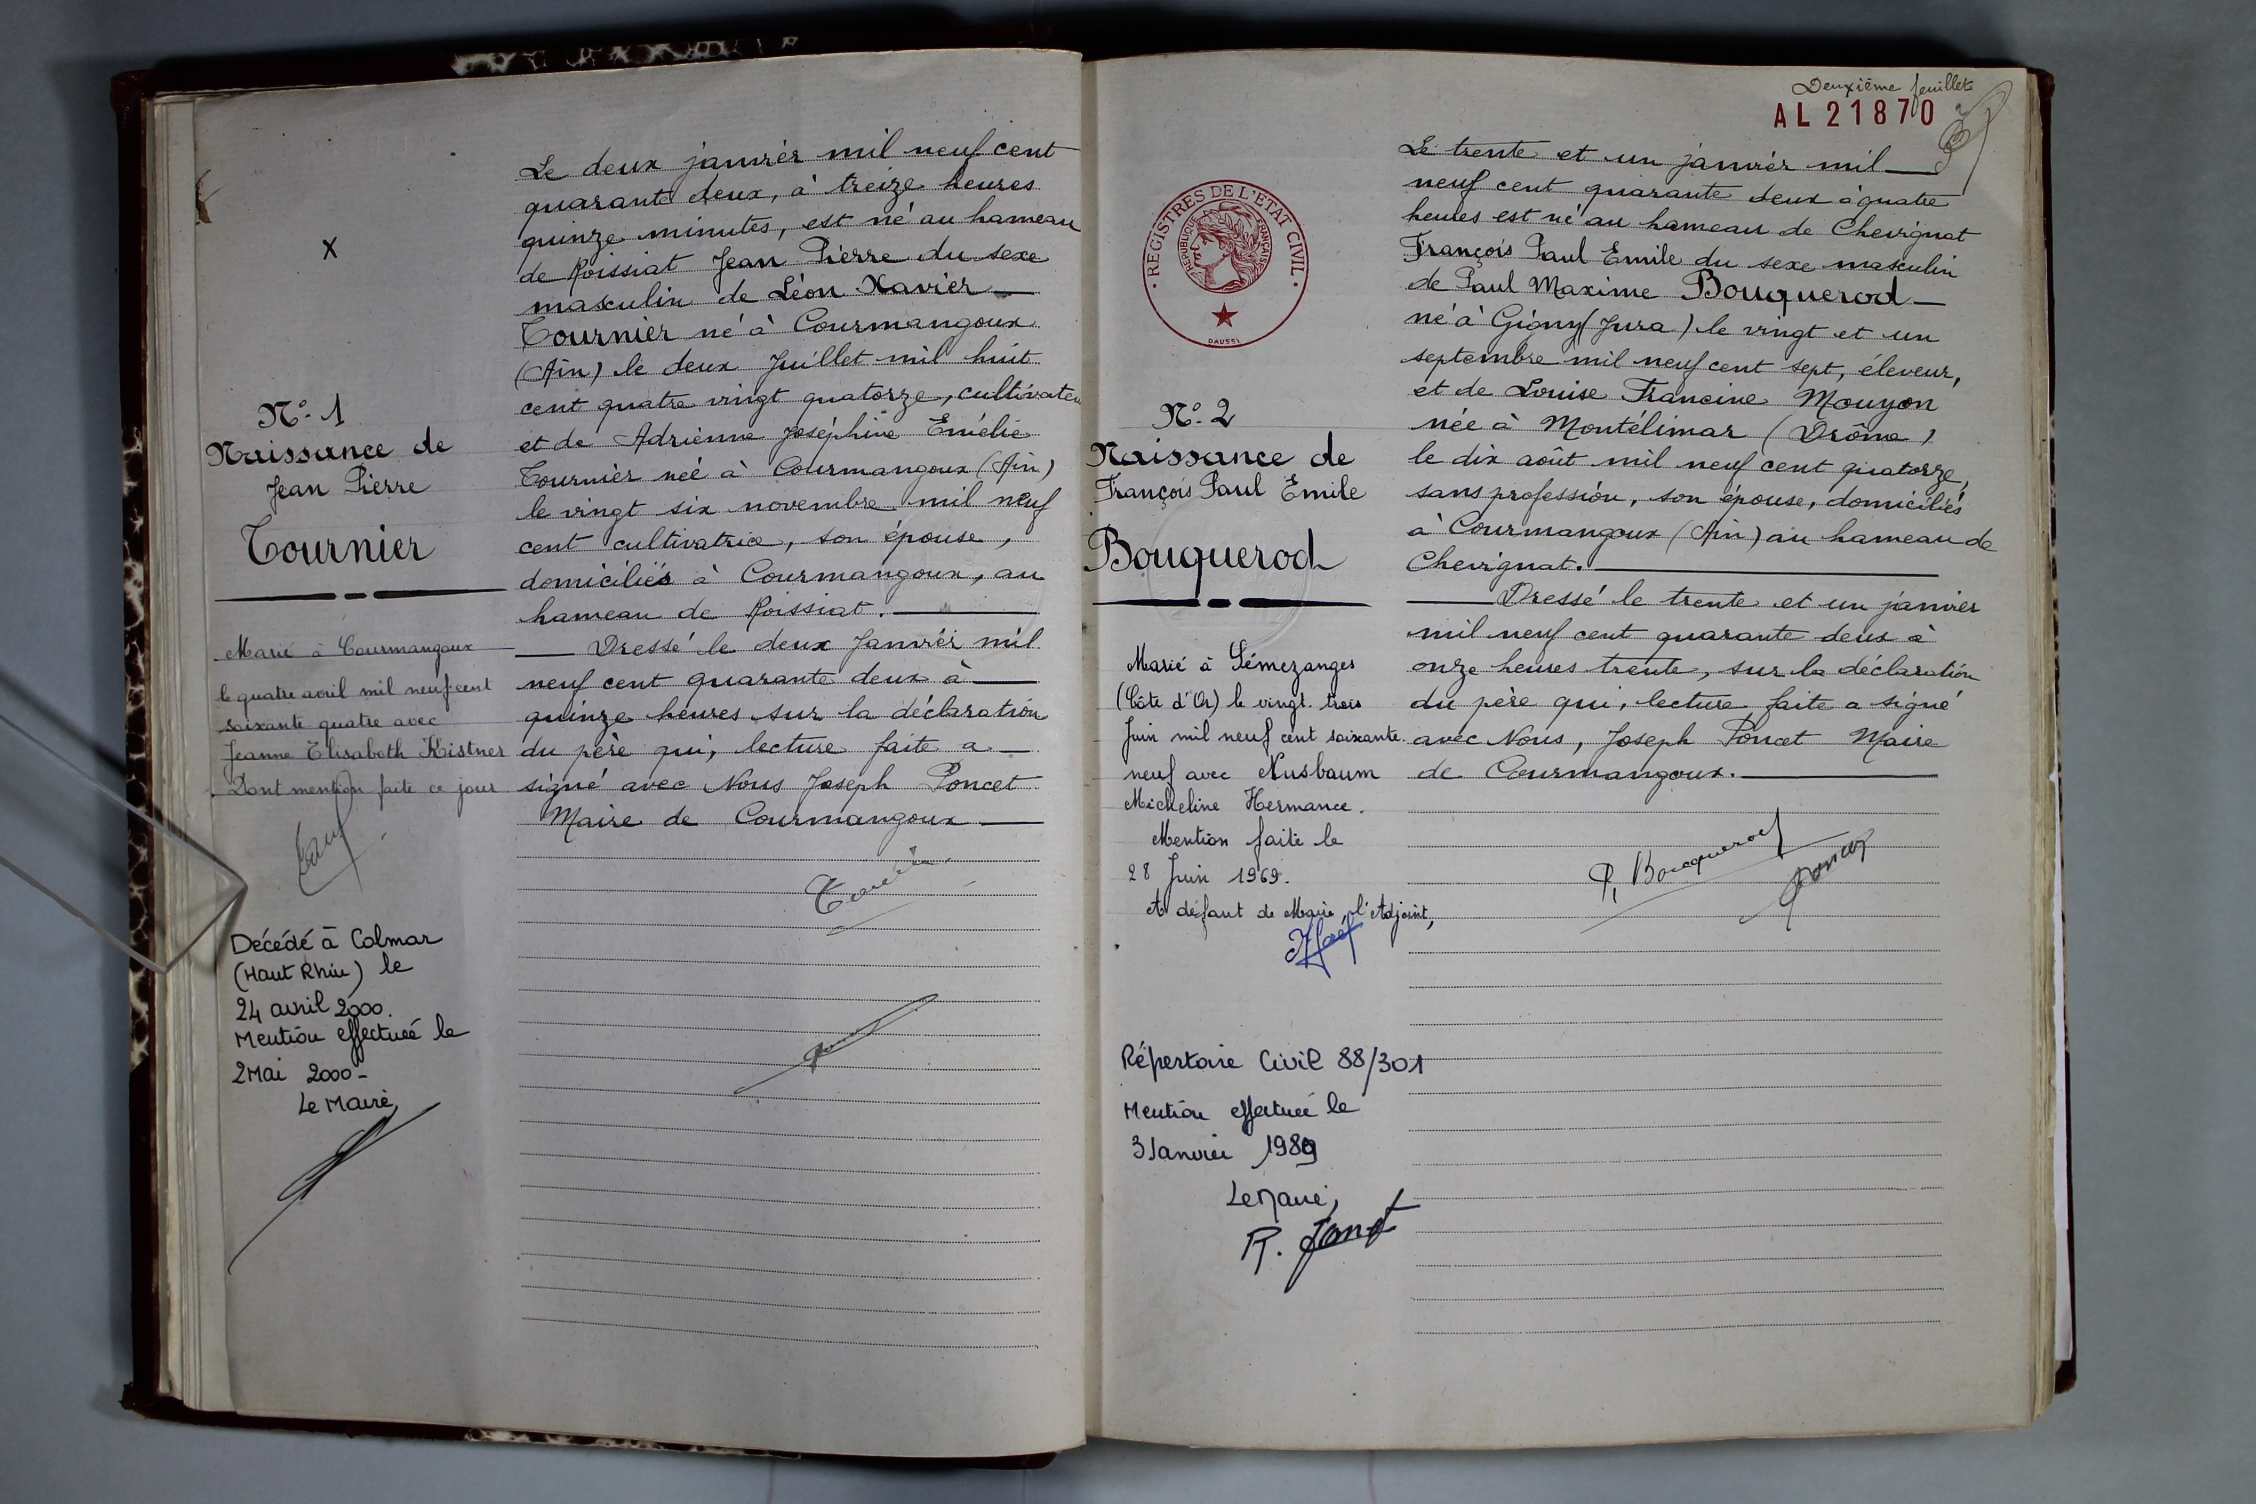 X
N°- 1
Naissance de
Jean Pierre
Tournier
Marié à Courmangoux
le quatre avril mil neuf cent
soixante quatre avec
Jeanne Elisabeth Kistner
Dont mention faite ce jour
Décédé à Colmar
(Haut Rhin) le
24 avril 2000.
Mention effectuée le
2 Mai 2000 -
Le Maire,
Le deux janvier mil neuf cent
quarante deux, à treize heures
quinze minutes, est né au hameau
de Roissiat Jean Pierre du sexe
masculin de Léon Xavier
Tournier né à Courmangoux
(Ain) le deux Juillet mil huit
cent quatre vingt quatorze, cultivateur
et de Adrienne Joséphine Emélie
Tournier née à Courmangoux (Ain)
le vingt six novembre mil neuf
cent cultivatrice, son épouse,
domiciliés à Courmangoux, au
hameau de Roissiat.
Dressé le deux Janvier mil
neuf cent quarante deux à
quinze heures sur la déclaration
du père qui, lecture faite a
signé avec Nous Joseph Poncet
Maire de Courmangoux
Deuxième feuillet
AL 21870
REGISTRES DE L'ETAT CIVIL
REPUBLIQUE FRANÇAISE
DAUSSI
N°- 2
Naissance de
François Paul Emile
Bouquerod
Marié à Sémezanges
(Côte d'Or) le vingt. trois
Juin mil neuf cent soixante.
neuf avec Nusbaum
Micheline Hermance.
Mention faite le
28 Juin 1969.
A défaut de Maire, l'Adjoint,
Répertoire Civil 88/301
Mention effectuée le
3 Janvier 1989
Le Maire,
R. Janet
Le trente et un janvier mil
neuf cent quarante deux à quatre
heures est né au hameau de Chevignat
François Paul Emile du sexe masculin
de Paul Maxime Bouquerod
né à Gigny (Jura) le vingt et un
septembre mil neuf cent sept, éleveur,
et de Louise Francine Mouyon
née à Montélimar (Drôme)
le dix août mil neuf cent quatorze,
sans profession, son épouse, domiciliés
à Courmangoux (Ain) au hameau de
Chevignat.
Dressé le trente et un janvier
mil neuf cent quarante deux à
onze heures trente, sur la déclaration
du père qui, lecture faite a signé
avec Nous, Joseph Poncet Maire
de Courmangoux.
P. Boucquerod
Poncet